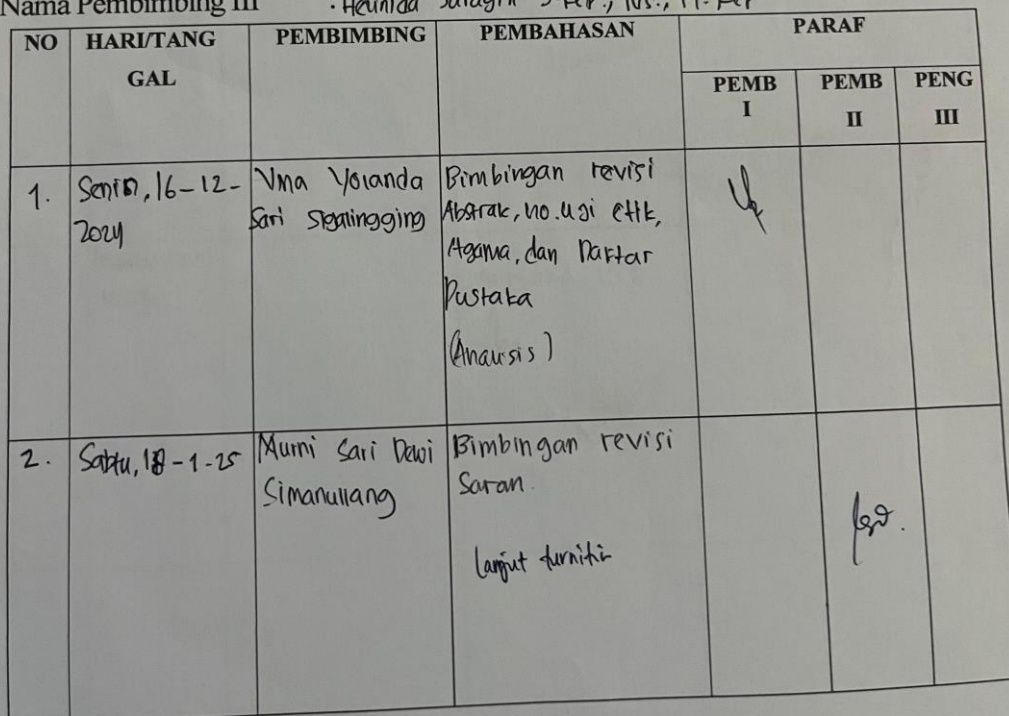 Nama Pembimbing III : Helinida Saragih S.Kep., Ns., M.Kep
NO HARI/TANG GAL PEMBIMBING PEMBAHASAN PARAF
PEMB I PEMB II PENG III
1. Senin, 16-12-2024
Vma Yolanda
Sari Sigalingging
Bimbingan revisi
Abstrak, no. uji etik,
Agama, dan Daftar
Pustaka
(Analisis)
2. Sabtu, 18-1-25
Murni Sari Dewi
Simanullang
Bimbingan revisi
Saran.
lanjut turnitin